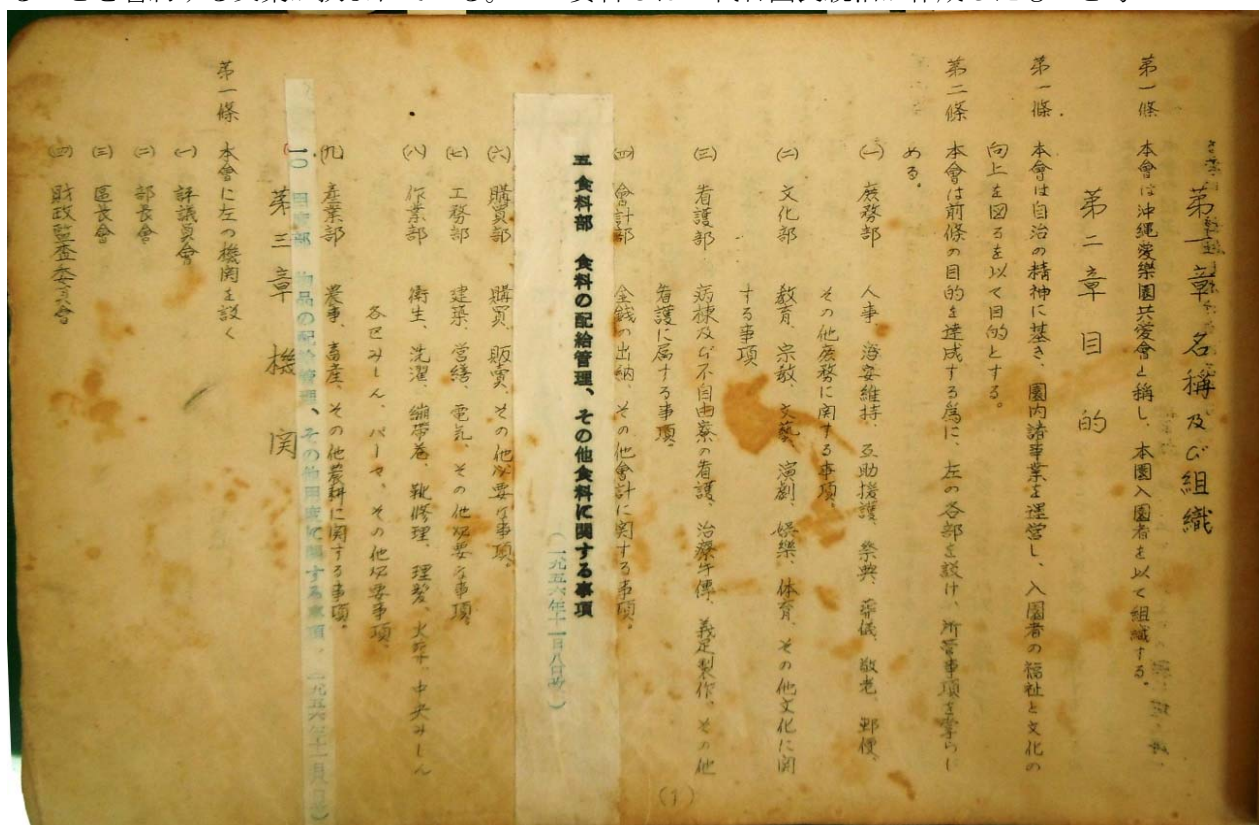 第一章 名稱及び組織
第一條 本會は沖縄愛樂園共愛會と稱し、本園入園者を以て組織する。
第二章 目的
第一條 本會は自治の精神に基き、園内諸事業を運営し、入園者の福祉と文化の
向上を図るを以て目的とする。
第二條 本會は前條の目的を達成する為に、左の各部を設け、所管事項を掌らし
める。
(一) 庶務部 人事、治安維持、互助援護、祭典、葬儀、敬老、郵便、
その他庶務に関する事項。
(二) 文化部 教育、宗教、文藝、演劇、娯樂、体育、その他文化に関
する事項
(三) 看護部 病棟及び不自由寮の看護、治療手傳、義足製作、その他
看護に属する事項。
(四) 會計部 金銭の出納、その他會計に関する事項。
五 食料部 食料の配給管理、その他食料に関する事項
(一九五六年十一月八日改)
(六) 購買部 購買、販賣、その他必要な事項。
(七) 工務部 建築、営繕、電気、その他必要な事項
(八) 作業部 衛生、洗濯、繃帯巻、靴修理、理髪、火葬、中央みしん
各区みしん、パーマ、その他必要事項
(九) 産業部 農事、畜産、その他農耕に関する事項。
一〇 用度部 物品の配給管理、その他用度に関する事項、一九五六年十一月八日改)
第三章 機関
第一條 本會に左の機関を設く
(一) 評議員會
(二) 部長會
(三) 區長會
(四) 財政監査委員會
(1)